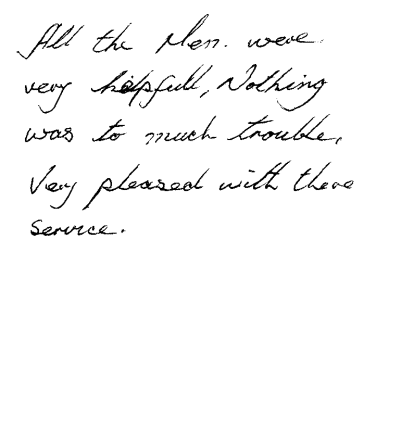 All the Men. were
very helpfull, Nothing
was to much trouble,
Very pleased with there
service.